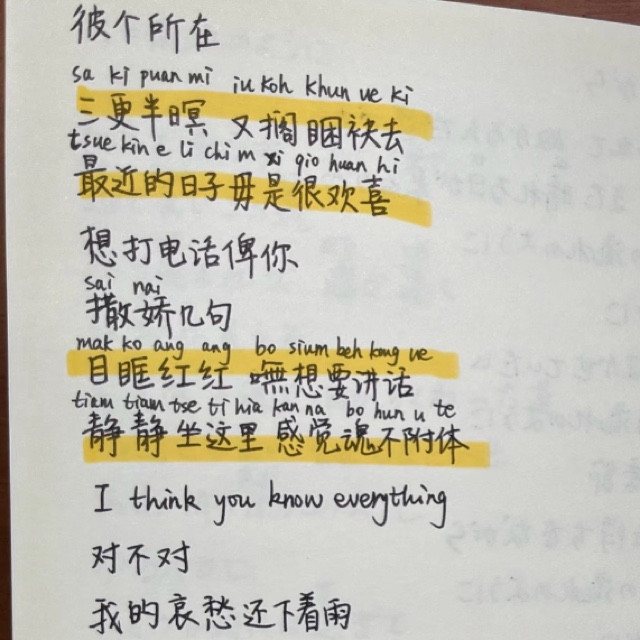 彼个所在
sa ki puan mi iu koh khun ve ki
三更半暝 又搁睏袂去
tsue kin e li chi m xi qio huan hi
最近的日子毋是很欢喜
想打电话俾你
sai nai
撒娇几句
mak ko ang ang bo sium beh kong ve
目眶红红 嘸想要讲话
tiam tiam tse ti hia kan na bo hun u te
静静坐这里 感觉魂不附体
I think you know everything
对不对
我的哀愁还下着雨